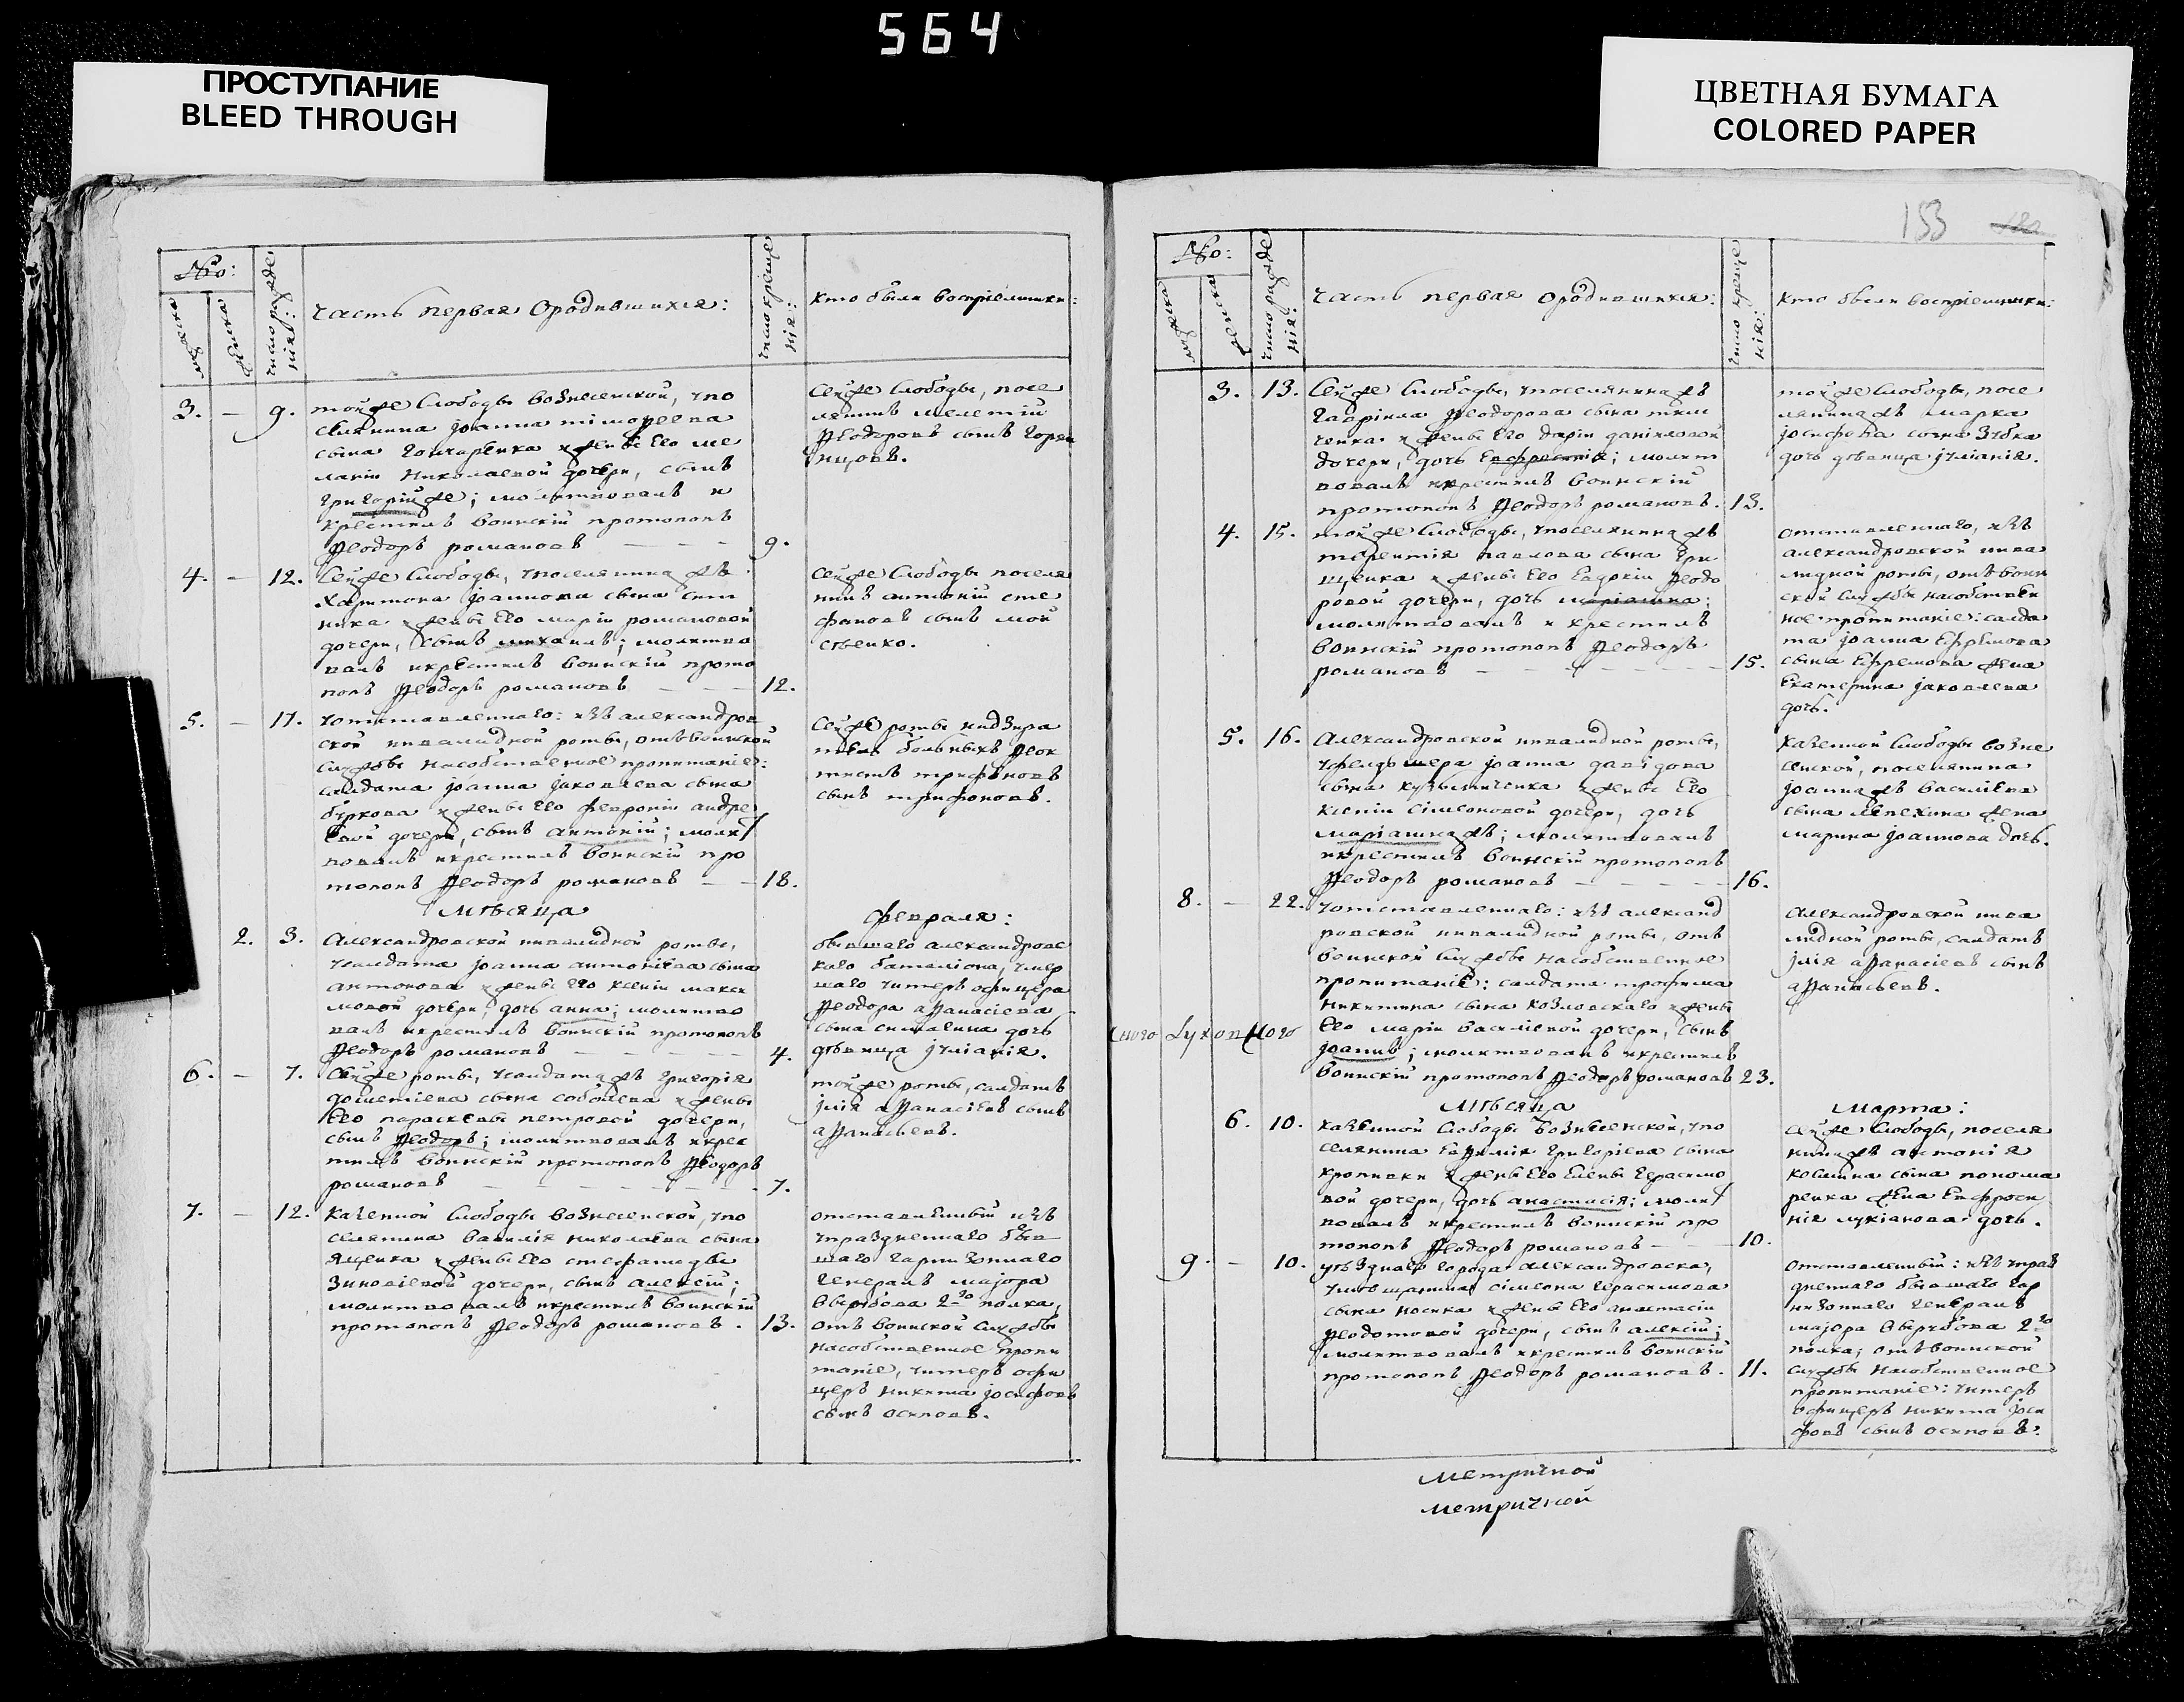 564
ПРОСТУПАНИЕ
BLEED THROUGH
ЦВЕТНАЯ БУМАГА
COLORED PAPER
153
№о:
мужеска
женска
число рожде
нія:
Часть первая Ородившихся:
число креще
нія:
Кто были восприемники:
3. — 9. тойже Слободы вознесенской, упо
селянина Іоанна тімофеева
сына Гончаренка и жены Его ме
ланіи Николаевой дочери, сынъ
Григорійже; молитвовалъ и
крестилъ воинскій протопопъ
Ѳеодоръ романовъ — — — 9.
Сейже Слободы, посе
ленинъ мелетій
Ѳеодоровъ сынъ Горян
нцовъ.
4. — 12. Сейже Слободы, упоселянина жъ
Харитона Іоаннова сына Сит
ника и жены Его маріи романовой
дочери, сынъ михаилъ; молитво
валъ икрестилъ воинскій прото
попъ Ѳеодоръ романовъ — — — 12.
Сейже Слободы поселя
нинъ антоній сте
фановъ сынъ мой
сѣенко.
5. — 17. уотставленнаго: изъ александров
ской инвалидной роты, отъвоинской
службы насобственное пропитаніе:
салдата Іоанна Іаковлева сына
бѣркова и жены Его февроніи андре
Евой дочери, сынъ антоній; молит
вовалъ икрестилъ воинскій про
топопъ Ѳеодоръ романовъ — — 18.
Сейже роты надзира
тель больныхъ Ѳеок
тистъ трифоновъ
сынъ трифоновъ.
Мѣсяца февраля:
2. 3. Александровской инвалидной роты,
усалдата Іоанна антоніева сына
антонова и жены Его Ксеніи макси
мовой дочери, дочь анна; молитво
валъ икрестилъ воинскій протопопъ
Ѳеодоръ романовъ — — — 4.
бывшаго александровс
каго баталіона, умер
шаго унтеръ офицера
Ѳеодора аѳанасіева
сына дочь
дѣвица Іуліанія.
6. — 7. Сейже роты, усалдата жъ григорія
дометіева сына соболева и жены
Его параскевы петровой дочери,
сынъ Ѳеодоръ; молитвовалъ икрес
тилъ воинскій протопопъ Ѳеодоръ
романовъ — — — 7.
тойже роты, салдатъ
Ілія аѳанасіевъ сынъ
аѳанасьевъ.
7. — 12. Казенной Слободы вознесенской, упо
селянина василія николаева сына
Яценка и жены Его стефаниды
Зиновіевой дочери, сынъ алексій;
молитвовалъ икрестилъ воинскій
протопопъ Ѳеодоръ романовъ. 13.
отставленный изъ
упраздненнаго быв
шаго гарнизоннаго
Генералъ маіора
Вербова 2го полка,
отъ воинской службы
насобственное пропи
таніе, унтеръ офи
церъ никита Іосифовъ
сынъ осиповъ.
№о:
мужеска
женска
число рожде
нія:
Часть первая Ородившихся:
число креще
нія:
Кто были восприемники:
3. 13. Сейже Слободы, упоселянина жъ
гавріила Ѳеодорова сына ткал
ченка и жены Его даріи даніиловой
дочери, дочь Евфросинія; молит
вовалъ икрестилъ воинскій
протопопъ Ѳеодоръ романовъ. 13.
тойже Слободы, посе
лянина жъ марка
Іосифова сына Зубка
дочь дѣвица Іуліанія.
4. 15. тойже Слободы, упоселянина жъ
терентія павлова сына гри
щенка и жены Его Евдокіи Ѳеодо
ровой дочери, дочь маріанна;
молитвовалъ и крестилъ
воинскій протопопъ Ѳеодоръ
романовъ — — — 15.
отставленнаго, изъ
александровской инва
лидной роты, отъ воин
ской службы насобствен
ное пропитаніе: салда
та Іоанна Ефремова
сына Ефремова жена
Екатерина Іаковлева
дочь.
5. 16. Александровской инвалидной роты,
уфелдшера Іоанна давідова
сына кузмиченка и жены Его
Ксеніи сімеоновой дочери, дочь
маріанна жъ; молитвовалъ
икрестилъ воинскій протопопъ
Ѳеодоръ романовъ — — — 16.
Казенной Слободы возне
сенской, поселянина
Іоанна жъ василіева
сына лепехина жена
марина Іоаннова дочь.
8. — 22. уотставленнаго: изъ александ
ровской инвалидной роты, отъ
воинской службы насобственное
пропитаніе: салдата трофима
никитина сына козловскаго и жены
Его маріи василіевой дочери, сынъ
Іоаннъ; молитвовалъ икрестилъ
воинскій протопопъ Ѳеодоръ романовъ 23.
Александровской инва
лидной роты, салдатъ
Ілія аѳанасіевъ сынъ
аѳанасьевъ.
Мѣсяца Марта:
6. 10. Казенной Слободы Вознесенской, упо
селянина Евфимія григоріева сына
кропивки и жены Его Елены Герасимо
вой дочери, дочь анастасія; молит
вовалъ икрестилъ воинскій про
топопъ Ѳеодоръ романовъ — — 10.
Сейже Слободы, поселя
нина жъ антонія
космина сына понома
ренка жена Евфроси
нія лукіанова дочь.
9. — 10. уѣзднаго города александровска,
умѣщанина сімеона Герасимова
сына носика и жены Его анастасіи
Ѳеодотовой дочери, сынъ алексій;
молитвовалъ икрестилъ воинскій
протопопъ Ѳеодоръ романовъ. 11.
отставленный: изъ упраз
дненнаго бывшаго гар
низоннаго Генералъ
маіора Вербова 2го
полка, отъ воинской
службы насобственное
пропитаніе: унтеръ
офицеръ никита Іоси
фовъ сынъ осиповъ.
Метричной
Метричной